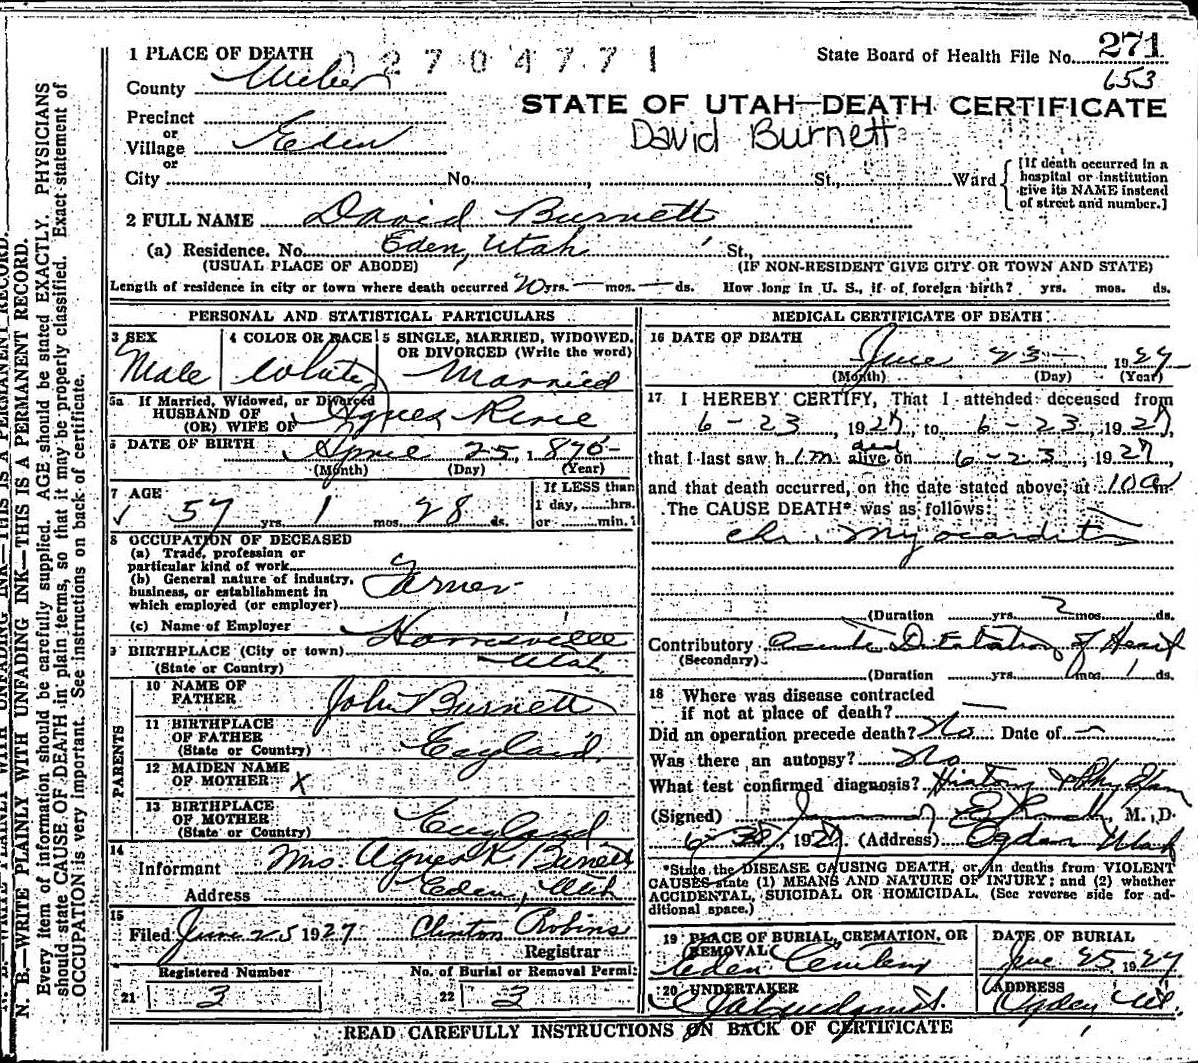 1 PLACE OF DEATH 02704771 State Board of Health File No. 271
653
County Weber
STATE OF UTAH—DEATH CERTIFICATE
Precinct
or
Village Eden
or
David Burnett
City No. , St., Ward
[If death occurred in a
hospital or institution
give its NAME instead
of street and number.]
2 FULL NAME David Burnett
(a) Residence. No. Eden, Utah St.,
(USUAL PLACE OF ABODE) (IF NON-RESIDENT GIVE CITY OR TOWN AND STATE)
Length of residence in city or town where death occurred 20 yrs. — mos. — ds. How long in U. S., if of foreign birth? yrs. mos. ds.
PERSONAL AND STATISTICAL PARTICULARS
3 SEX Male
4 COLOR OR RACE White
5 SINGLE, MARRIED, WIDOWED,
OR DIVORCED (Write the word)
Married
5a If Married, Widowed, or Divorced
HUSBAND OF
(OR) WIFE OF Agnes
6 DATE OF BIRTH April 25, 1870
(Month) (Day) (Year)
7 AGE
57 yrs. 1 mos. 28 ds.
If LESS than
1 day, hrs.
or min.
8 OCCUPATION OF DECEASED
(a) Trade, profession or
particular kind of work
(b) General nature of industry,
business, or establishment in
which employed (or employer) Farmer
(c) Name of Employer
9 BIRTHPLACE (City or town) Harrisville
(State or Country) Utah
PARENTS
10 NAME OF
FATHER John Burnett
11 BIRTHPLACE
OF FATHER
(State or Country) England
12 MAIDEN NAME
OF MOTHER X
13 BIRTHPLACE
OF MOTHER
(State or Country) England
14
Informant Mrs. Agnes R. Burnett
Address Eden, Utah
15
Filed June 25 1927 Clinton Robins
Registrar
Registered Number
21 3
No. of Burial or Removal Permit
22 3
MEDICAL CERTIFICATE OF DEATH
16 DATE OF DEATH
June 23 1927
(Month) (Day) (Year)
17 I HEREBY CERTIFY, That I attended deceased from
6-23, 1927, to 6-23, 1927,
did
that I last saw him alive on 6-23, 1927
and that death occurred, on the date stated above, at 10 a m.
The CAUSE DEATH* was as follows:
Chr. Myocarditis
(Duration yrs. 2 mos. ds.
Contributory Acute Dilatation of Heart
(Secondary)
(Duration yrs. mos. 1 ds.
18 Where was disease contracted
if not at place of death? —
Did an operation precede death? No Date of —
Was there an autopsy? No
What test confirmed diagnosis? History & Phy Exam
(Signed) , M. D.
1927 (Address) Ogden Utah
*State the DISEASE CAUSING DEATH, or, in deaths from VIOLENT
CAUSES state (1) MEANS AND NATURE OF INJURY; and (2) whether
ACCIDENTAL, SUICIDAL OR HOMICIDAL. (See reverse side for ad-
ditional space.)
19 PLACE OF BURIAL, CREMATION, OR
REMOVAL
Eden Cemetery
DATE OF BURIAL
June 25 1927
20 UNDERTAKER
ADDRESS
Ogden Ut.
READ CAREFULLY INSTRUCTIONS ON BACK OF CERTIFICATE
N. B.—WRITE PLAINLY WITH UNFADING INK—THIS IS A PERMANENT RECORD.
N. B.—WRITE PLAINLY WITH UNFADING INK—THIS IS A PERMANENT RECORD.
Every item of information should be carefully supplied. AGE should be stated EXACTLY. PHYSICIANS
should state CAUSE OF DEATH in plain terms, so that it may be properly classified. Exact statement of
OCCUPATION is very important. See instructions on back of certificate.